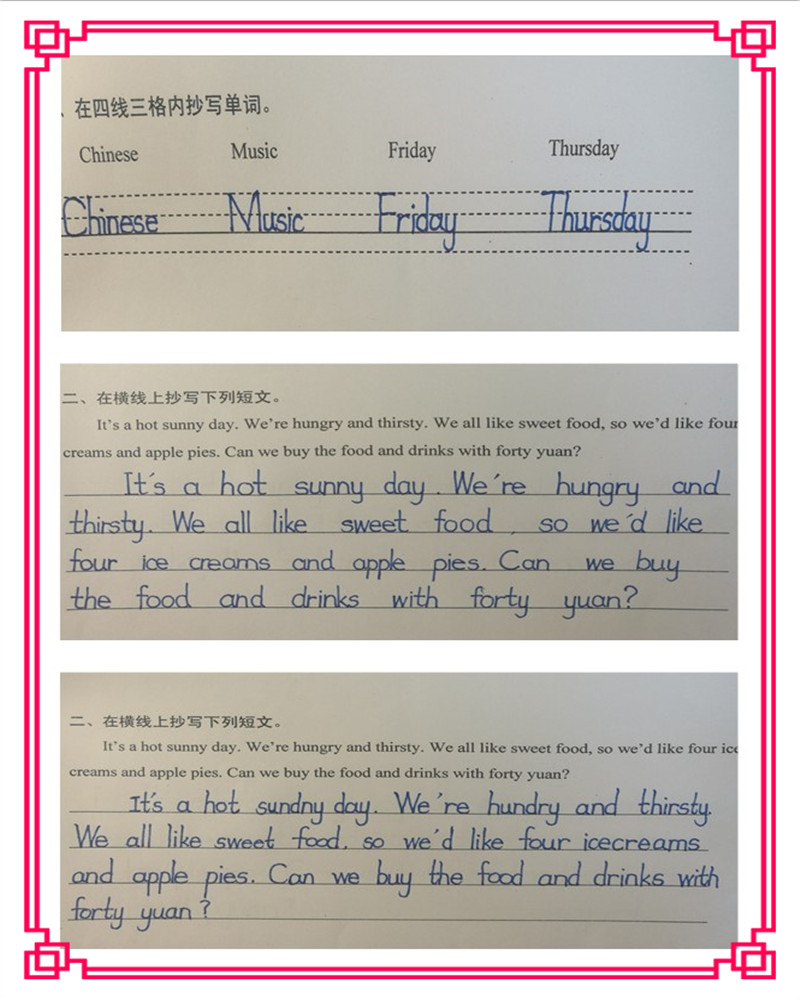 、在四线三格内抄写单词。
Chinese Music Friday Thursday
Chinese Music Friday Thursday
二、在横线上抄写下列短文。
It's a hot sunny day. We're hungry and thirsty. We all like sweet food, so we'd like four
creams and apple pies. Can we buy the food and drinks with forty yuan?
It's a hot sunny day. We're hungry and
thirsty. We all like sweet food, so we'd like
four ice creams and apple pies. Can we buy
the food and drinks with forty yuan?
二、在横线上抄写下列短文。
It's a hot sunny day. We're hungry and thirsty. We all like sweet food, so we'd like four ice
creams and apple pies. Can we buy the food and drinks with forty yuan?
It's a hot sundny day. We're hundry and thirsty.
We all like sweet food, so we'd like four icecreams
and apple pies. Can we buy the food and drinks with
forty yuan?